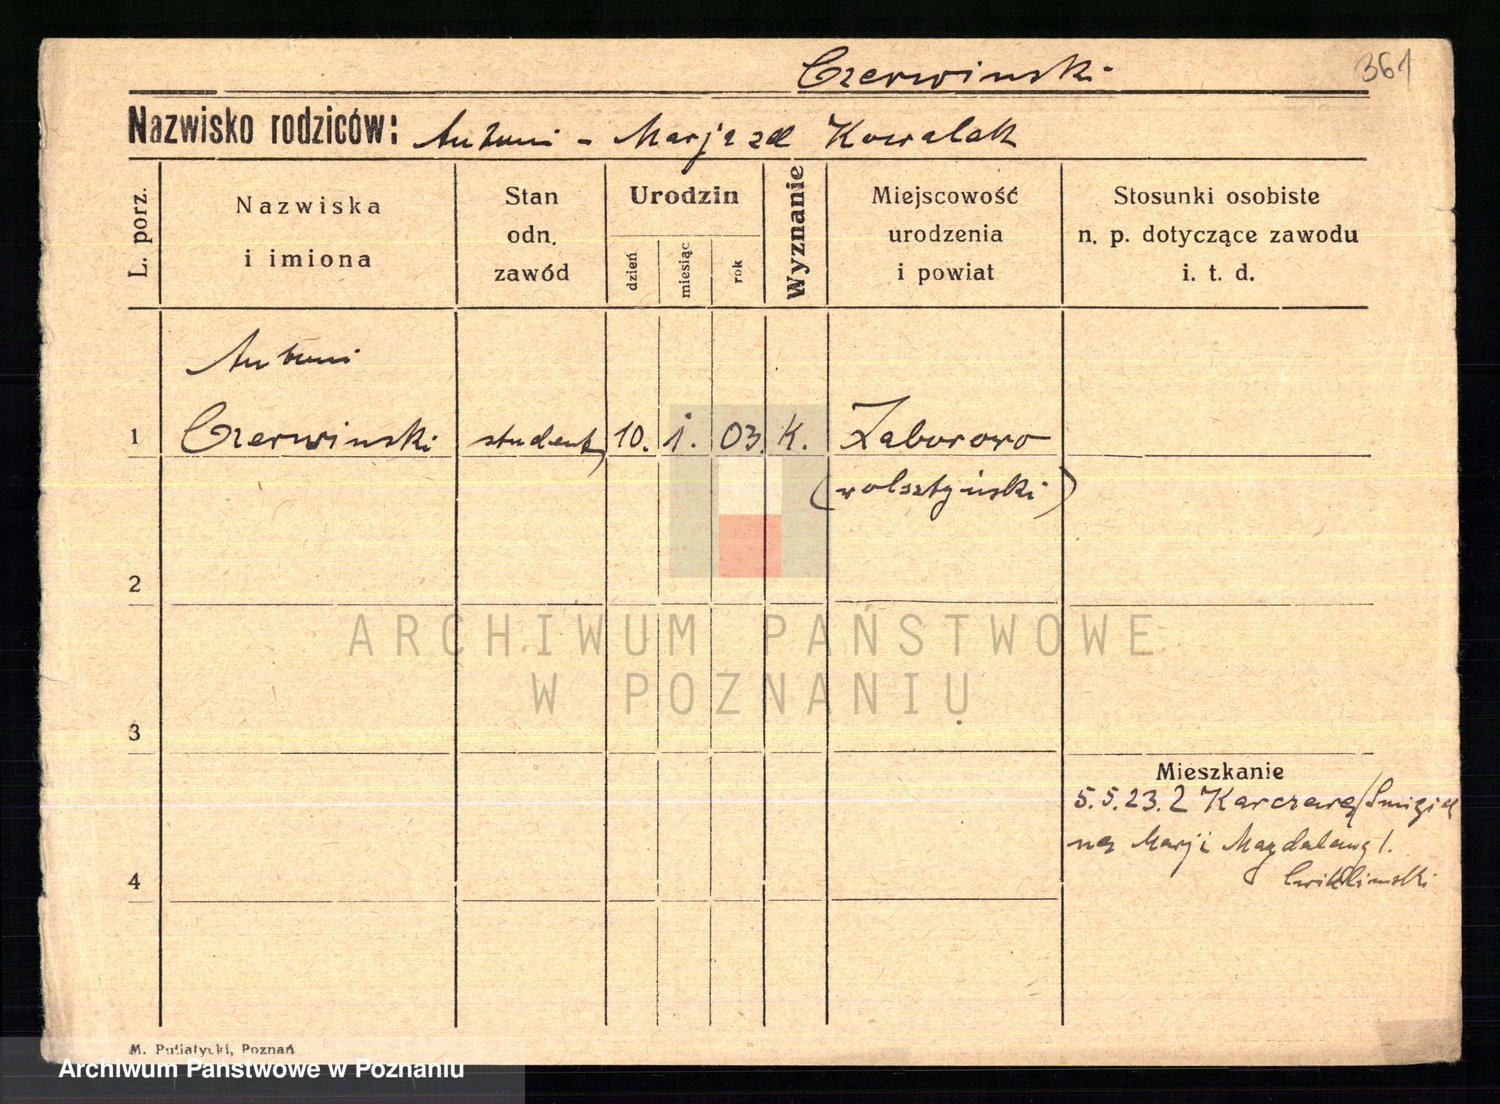 Czerwinski 361
Nazwisko rodziców: Antoni - Marja zd Kowalak
L. porz.
Nazwiska
i imiona
Stan
odn.
zawód
Urodzin
dzień
miesiąc
rok
Wyznanie
Miejscowość
urodzenia
i powiat
Stosunki osobiste
n. p. dotyczące zawodu
i. t. d.
Antoni
1 Czerwinski student 10. 1. 03. K. Zaborowo
(wolsztyński)
2
ARCHIWUM PAŃSTWOWE
W POZNANIU
3
Mieszkanie
5.5.23. Z Karczewa/Śmigiel
na Marji Magdaleny 1.
4
Cwiklinski
M. Putiatycki, Poznań
Archiwum Państwowe w Poznaniu